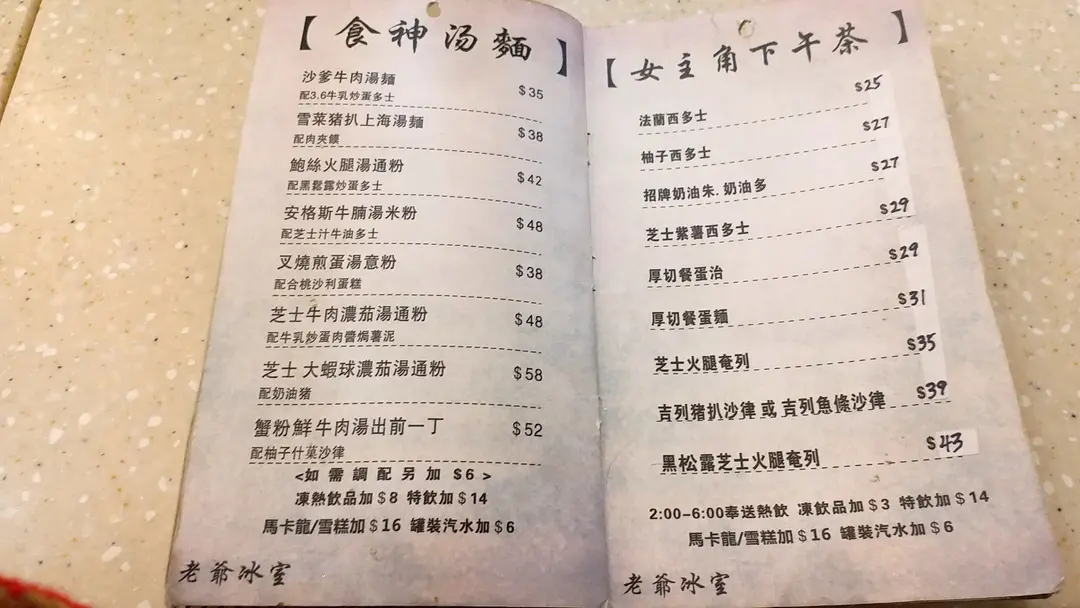 【食神汤麵】
沙爹牛肉湯麵 $35
配3.6牛乳炒蛋多士
雪菜猪扒上海湯麵 $38
配肉夾饃
鮑絲火腿湯通粉 $42
配黑鬆露炒蛋多士
安格斯牛腩湯米粉 $48
配芝士汁牛油多士
叉燒煎蛋湯意粉 $38
配合桃沙利蛋糕
芝士牛肉濃茄湯通粉 $48
配牛乳炒蛋肉醬焗薯泥
芝士 大蝦球濃茄湯通粉 $58
配奶油猪
蟹粉鮮牛肉湯出前一丁 $52
配柚子什菓沙律
<如需調配另加 $6>
凍熱飲品加$8 特飲加$14
馬卡龍/雪糕加$16 罐裝汽水加$6
老爺冰室
【女主角下午茶】
法蘭西多士 $25
柚子西多士 $27
招牌奶油朱.奶油多 $27
芝士紫薯西多士 $29
厚切餐蛋治 $29
厚切餐蛋麵 $31
芝士火腿奄列 $35
吉列猪扒沙律 或 吉列魚條沙律 $39
黑松露芝士火腿奄列 $43
2:00-6:00奉送熱飲 凍飲品加$3 特飲加$14
馬卡龍/雪糕加$16 罐裝汽水加$6
老爺冰室